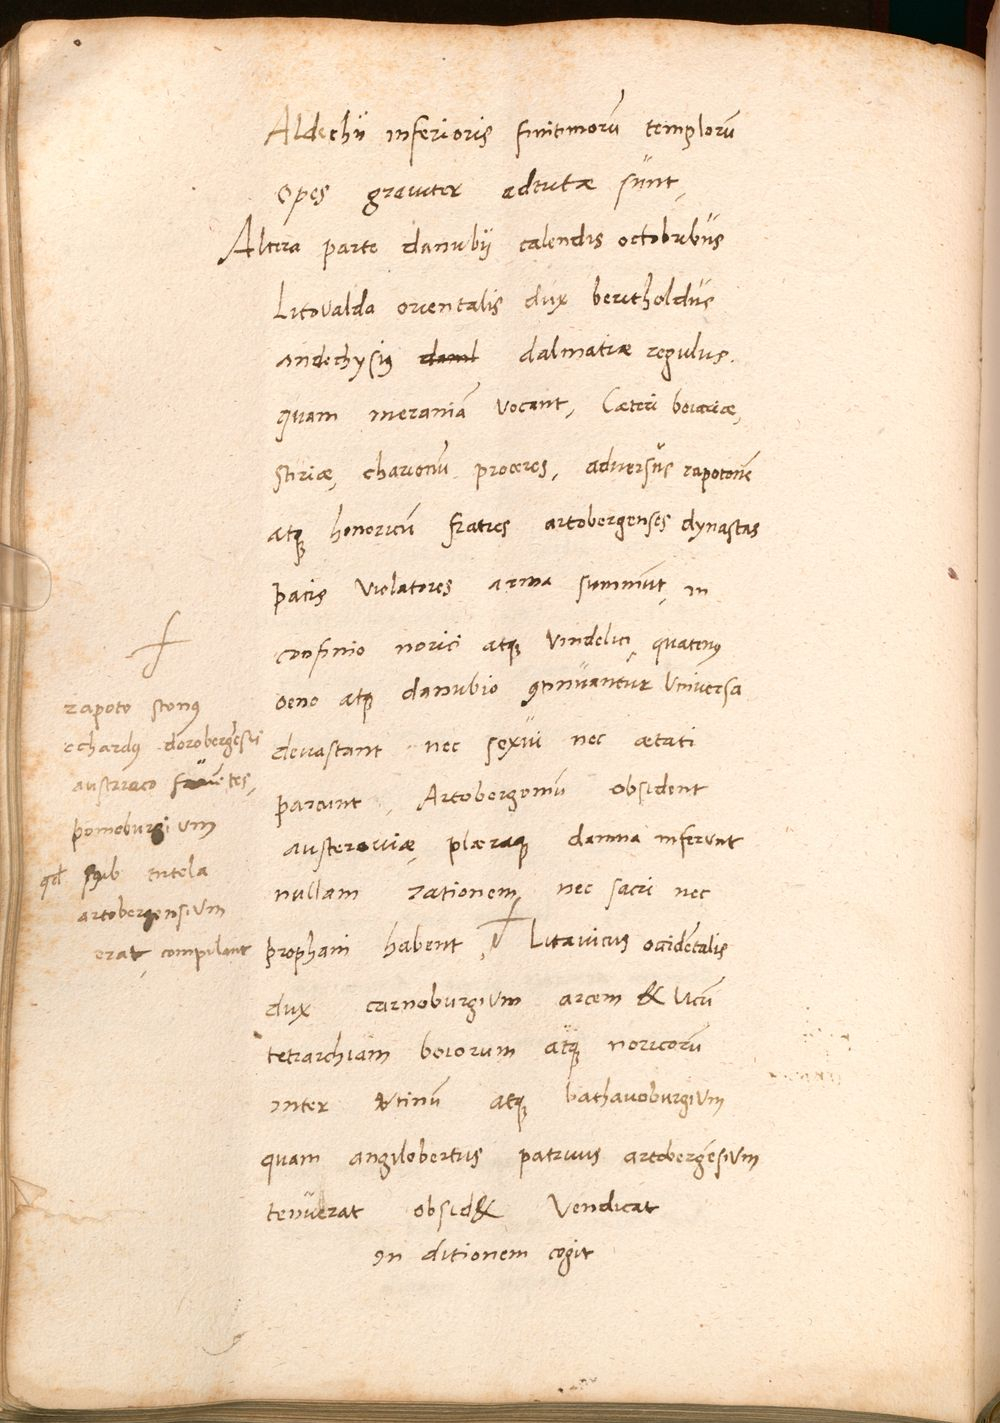 Aldechii inferioris finitimorū templorū
opes grauiter adtritæ sunt,
Altera parte danubij calendis octobribus
Litovalda orientalis dux beritholdus
andechysi9 daml dalmatiæ regulus.
quam meraniā vocant, Cæteri boiariæ,
Stiriæ, charionū proceres, aduersus rapotonē
atq; honoricū fratres artobergenses dynastas
pacis violatores arma summūt, in
confinio norici atq; vindelici, quaten9
oeno atq; danubio 9tinuantur vniversa
deuastant nec sexui nec ætati
parcunt, Artobergomū obsident
austerauiæ, plæraq; damna inferunt
nullam rationem, nec sacri nec
prophani habent, Litauicus occidētalis
dux carnoburgium arcem & vicū
tetrarchiam boiorum atq; noricorū
inter œtinū atq; bathauoburgium
quam angilobertus patruus artobergēsium
tenuerat obsid& vendicat
in ditionem cogit
rapoto ston9
echard9 dorobergēses
austriaco
pomeburgium
qd sub tutela
artobergensium
erat, compilant